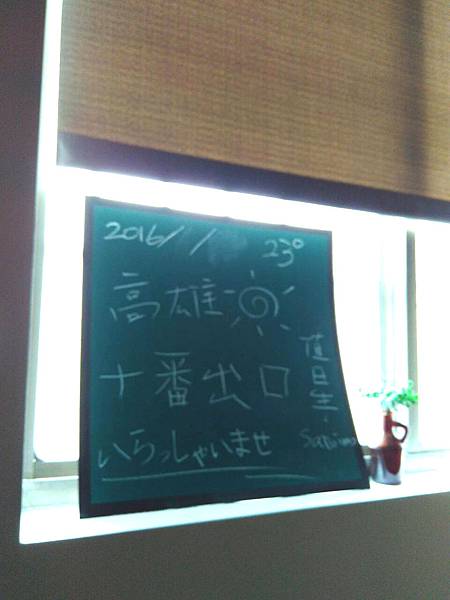 2016/ / 23°
高雄
十番出口
いらっしゃいませ
值日生: